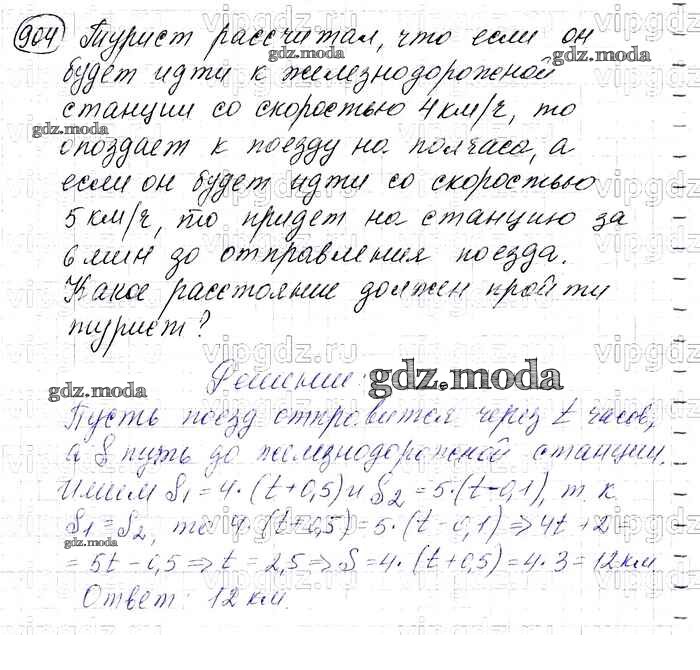 904 Турист рассчитал, что если он
будет идти к железнодорожной
станции со скоростью 4км/ч, то
опоздает к поезду на полчаса, а
если он будет идти со скоростью
5 км/ч, то придет на станцию за
6 мин до отправления поезда.
Какое расстояние должен пройти
турист?
Решение:
Пусть поезд отправится через t часов,
а S путь до железнодорожной станции.
Имеем S₁ = 4·(t+0,5) и S₂ = 5·(t-0,1), т.к.
S₁ = S₂, то 4·(t+0,5) = 5·(t-0,1) ⇒ 4t+2 =
= 5t-0,5 ⇒ t = 2,5 ⇒ S = 4·(t+0,5) = 4·3 = 12 км
Ответ: 12 км.
gdz.moda
gdz.moda
gdz.moda
gdz.moda
gdz.moda
gdz.moda
gdz.moda
vipgdz.ru